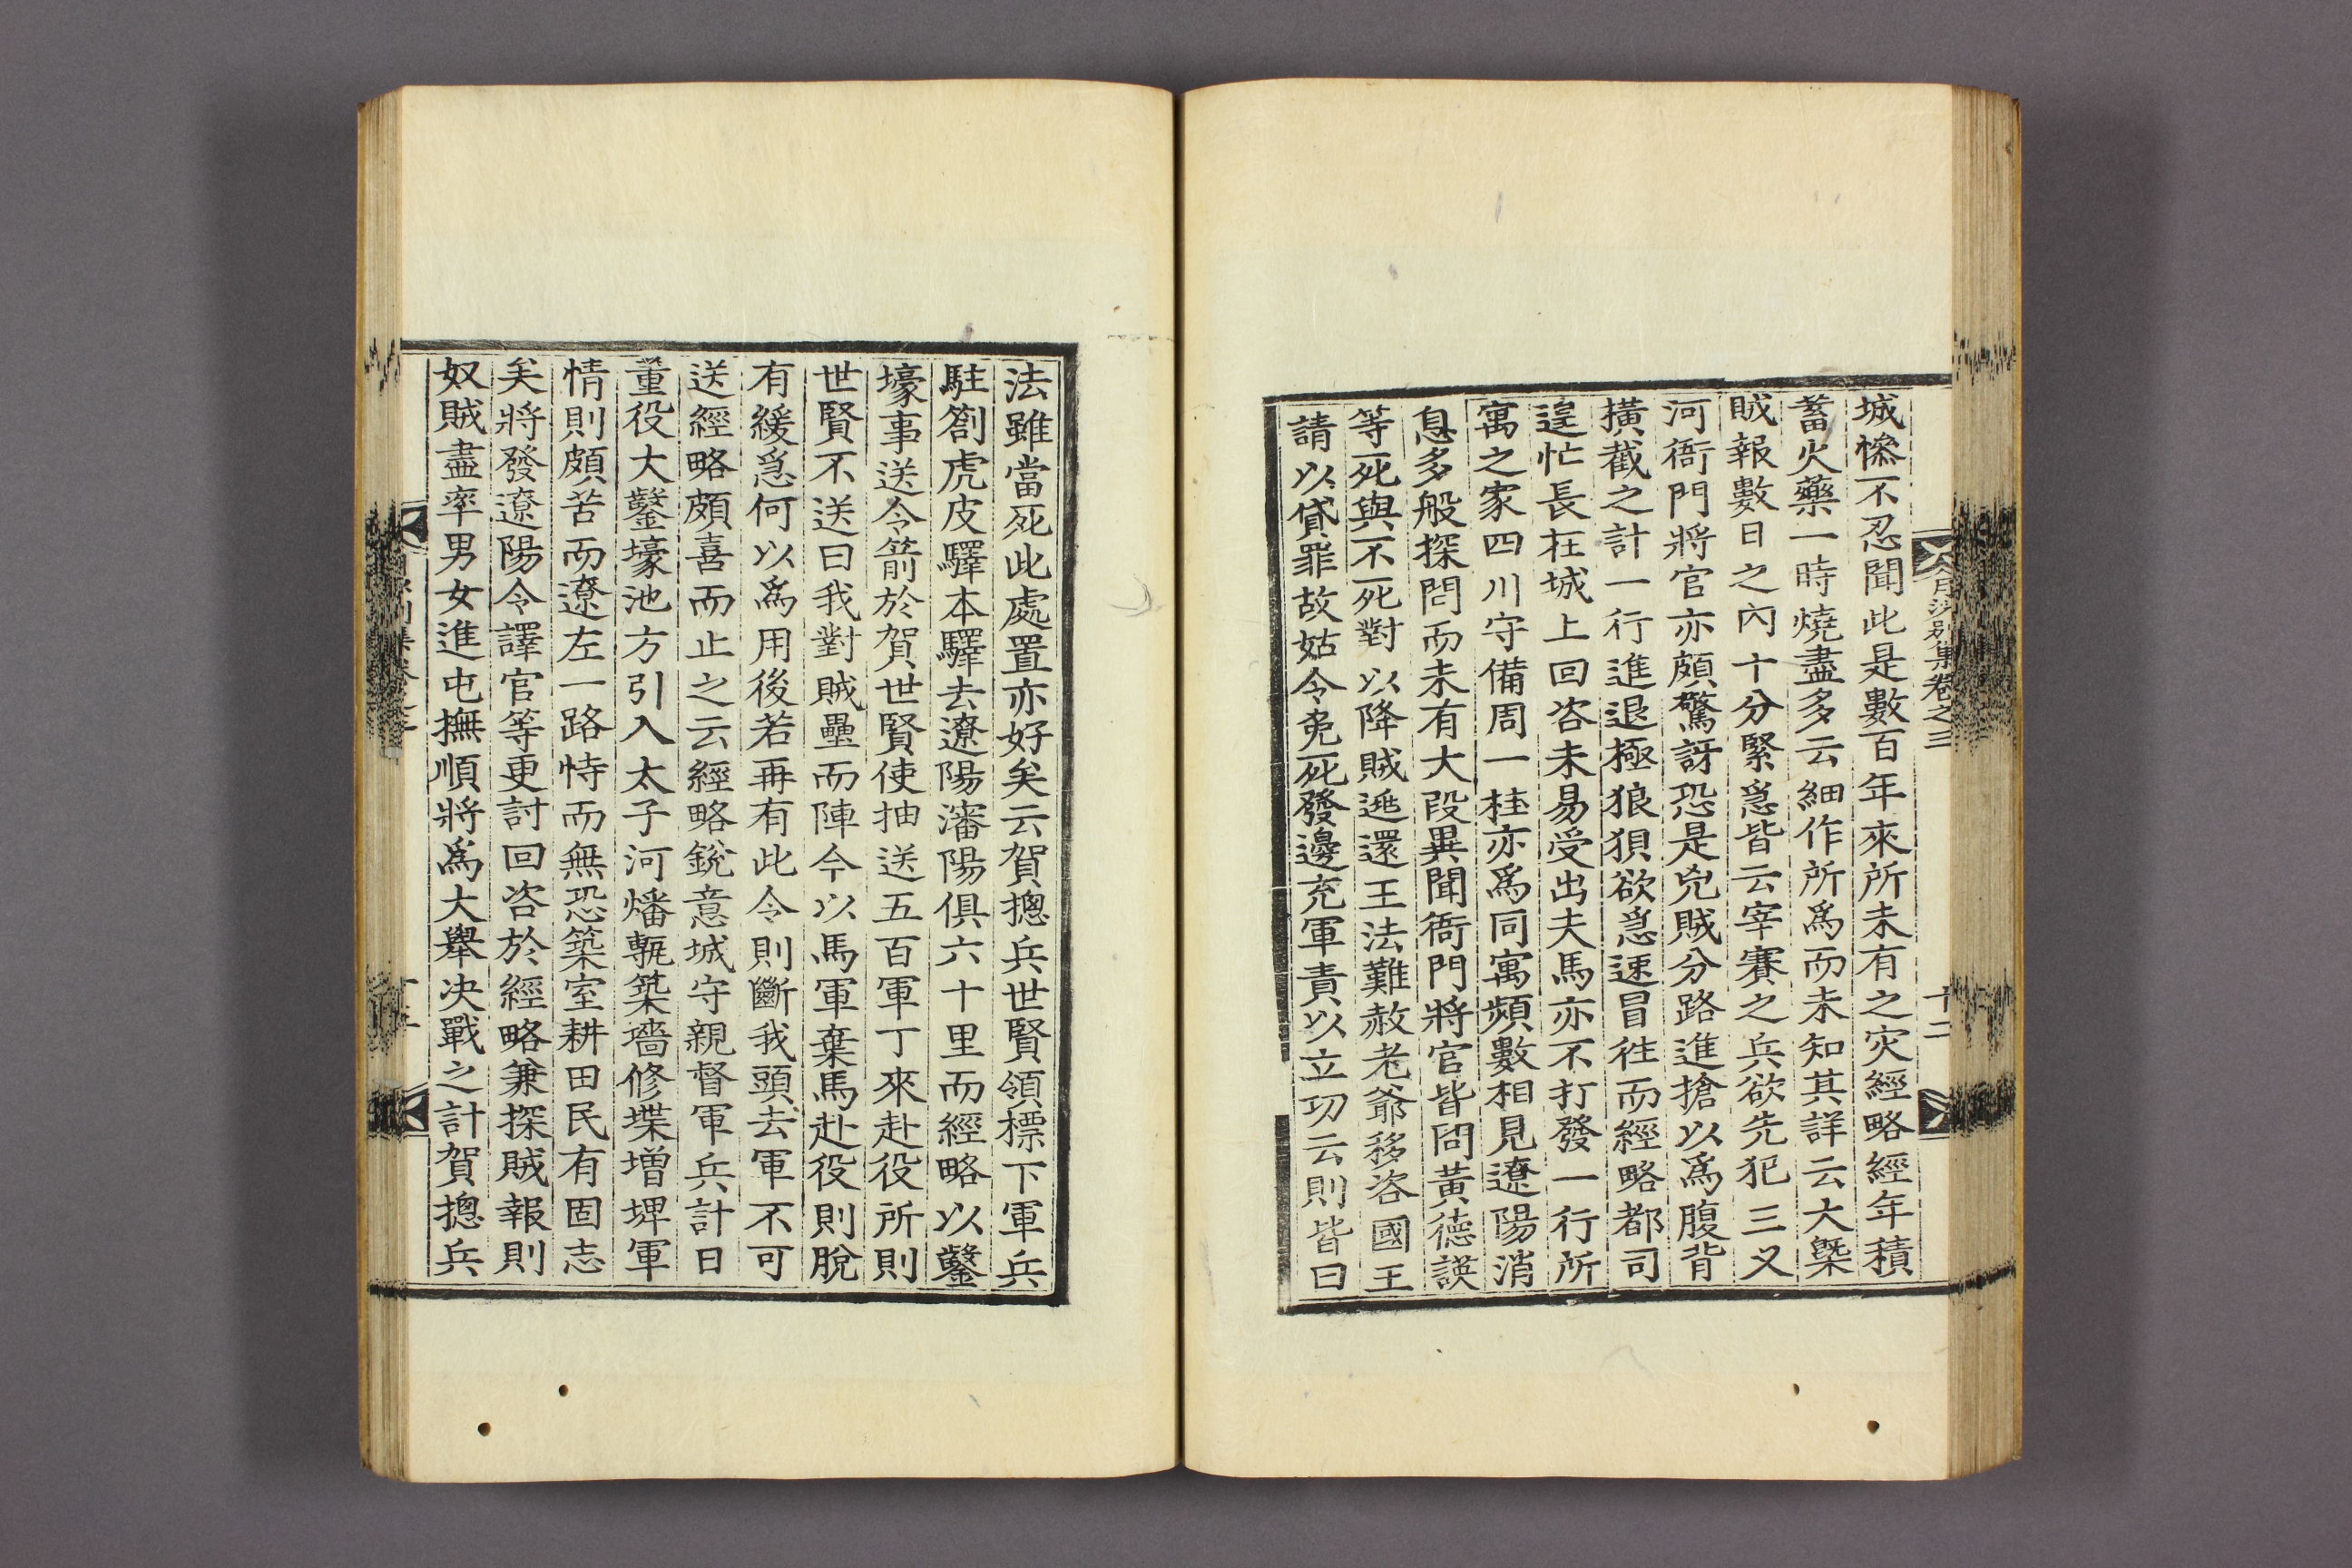 城慘不忍聞此是數百年來所未有之灾經略經年積
蓄火藥一時燒盡多云細作所爲而未知其詳云大槩
賊報數日之內十分緊急皆云宰賽之兵欲先犯三叉
河衙門將官亦頗驚訝恐是兇賊分路進搶以爲腹背
橫截之計一行進退極狼狽欲急速冒徃而經略都司
遑忙長在城上回咨未易受出夫馬亦不打發一行所
寓之家四川守備周一桂亦爲同寓頻數相見遼陽消
息多般探問而未有大段異聞衙門將官皆問黃德諰
等死與不死對以降賊逃還王法難赦老爺移咨國王
請以貸罪故姑令免死發邊充軍責以立功云則皆曰
別集卷之三
十二
法雖當死此處置亦好矣云賀摠兵世賢領標下軍兵
駐劄虎皮驛本驛去遼陽瀋陽俱六十里而經略以鑿
壕事送令箭於賀世賢使抽送五百軍丁來赴役所則
世賢不送曰我對賊壘而陣今以馬軍棄馬赴役則脫
有緩急何以爲用後若再有此令則斷我頭去軍不可
送經略頗喜而止之云經略銳意城守親督軍兵計日
董役大鑿壕池方引入太子河燔甎築墻修堞增埤軍
情則頗苦而遼左一路恃而無恐築室耕田民有固志
矣將發遼陽令譯官等更討回咨於經略兼探賊報則
奴賊盡率男女進屯撫順將爲大舉决戰之計賀摠兵